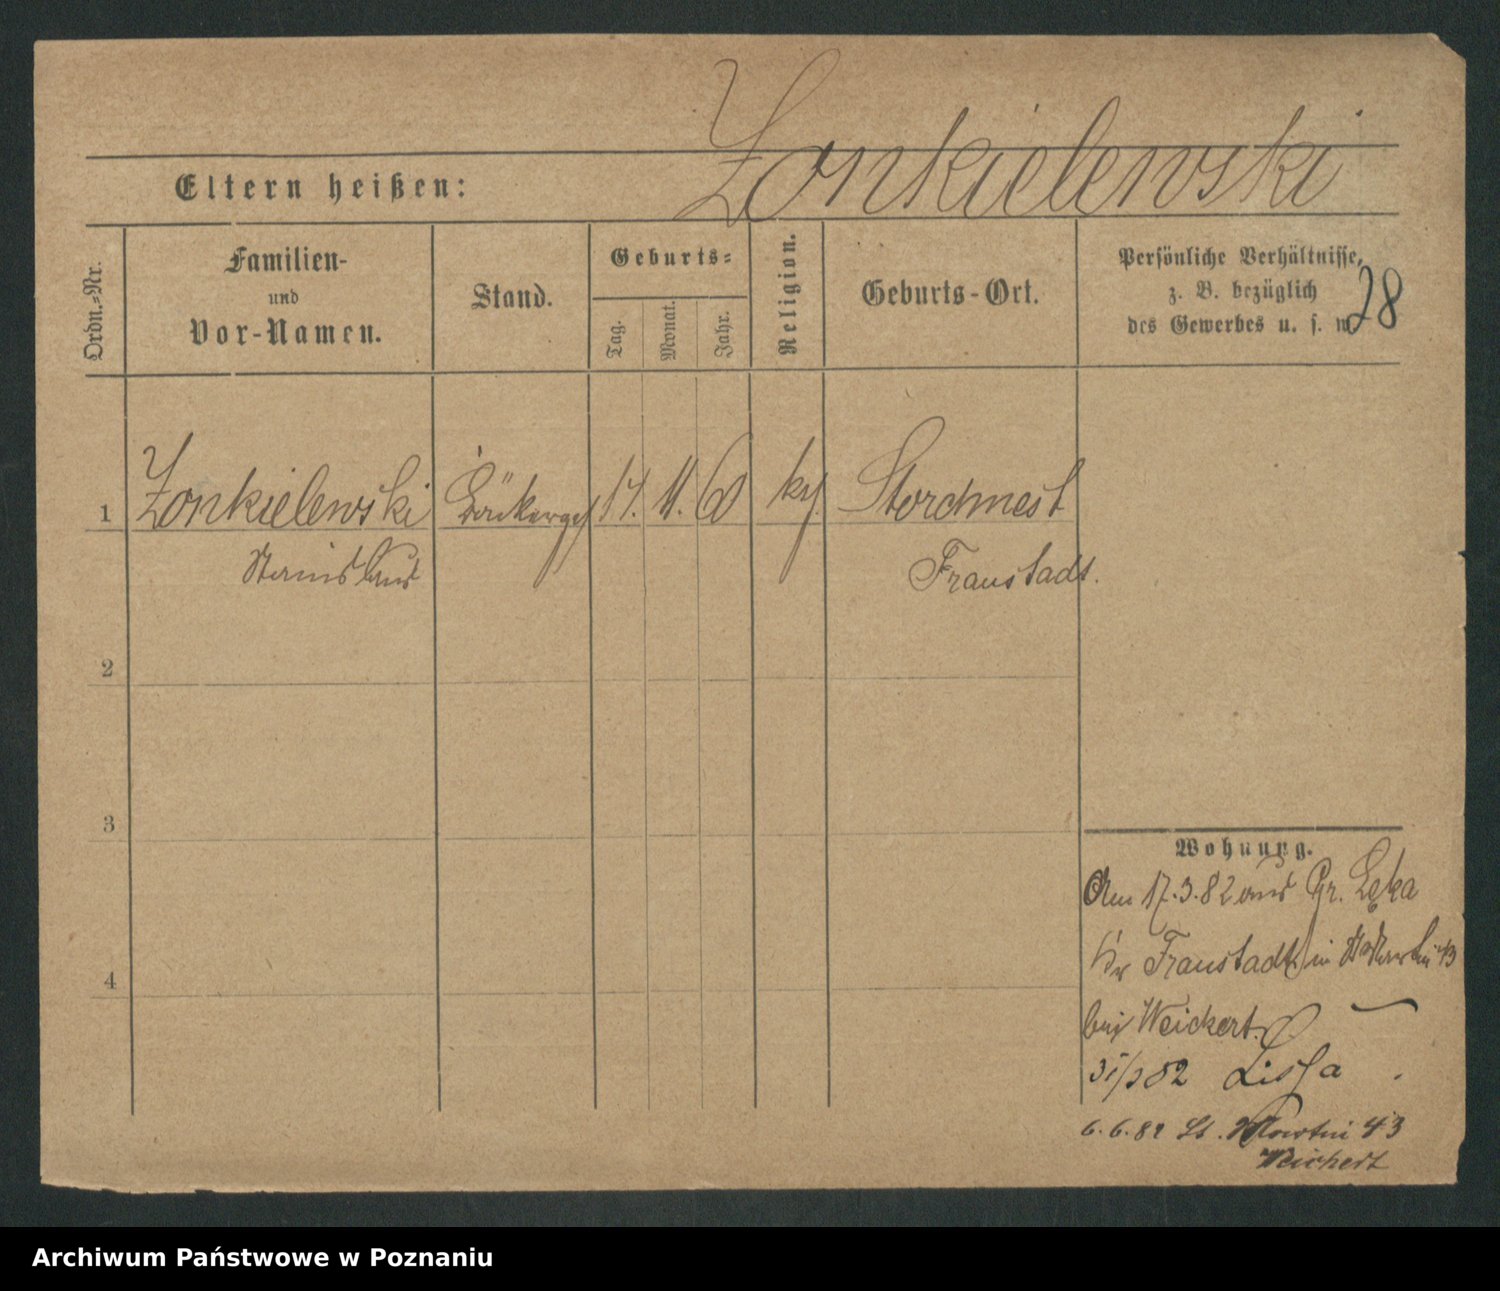 Zonkielewski
Eltern heißen:
Ordn.-Nr.
Familien-
und
Vor-Namen.
Stand.
Geburts-
Tag.
Monat.
Jahr.
Religion.
Geburts-Ort.
Persönliche Verhältnisse,
z. B. bezüglich
des Gewerbes u. s. w.
28
1 Zonkielewski Bäckerges 17. 11. 60 kth. Storchnest
Stanislaus Fraustadt.
2
3
4
Wohnung.
Am 17.3.82 aus Gr. Lęka
Kr Fraustadt in St Martin 43
bei Weickert.
31/3 82 Lissa
6.6.82 St. Martin 43
Weichert
Archiwum Państwowe w Poznaniu